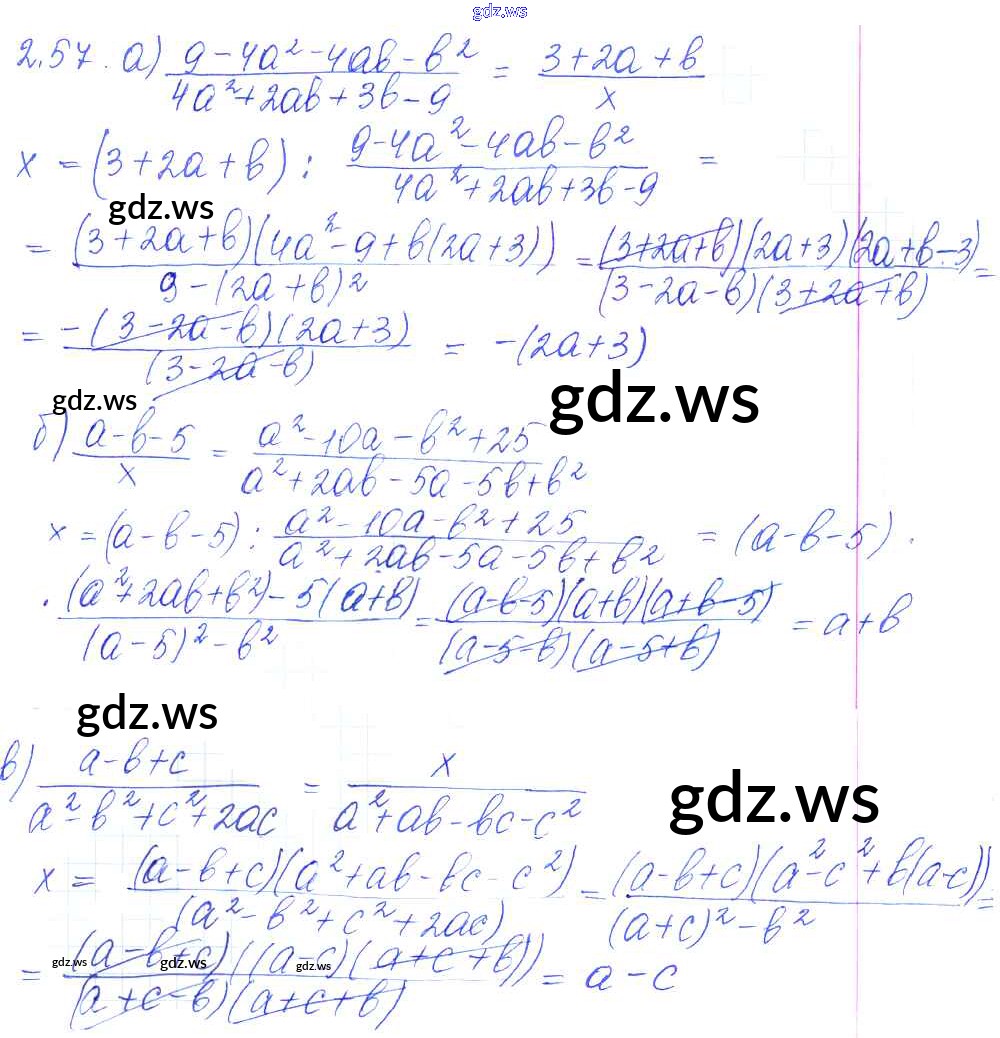 gdz.ws
2.57. а) (9-4a²-4ab-b²)/(4a²+2ab+3b-9) = (3+2a+b)/x
x = (3+2a+b) : (9-4a²-4ab-b²)/(4a²+2ab+3b-9) =
gdz.ws
= (3+2a+b)(4a²-9+b(2a+3))/(9-(2a+b)²) = (3+2a+b)(2a+3)(2a+b-3)/((3-2a-b)(3+2a+b)) =
= -(3-2a-b)(2a+3)/(3-2a-b) = -(2a+3)
gdz.ws
gdz.ws
б) (a-b-5)/x = (a²-10a-b²+25)/(a²+2ab-5a-5b+b²)
x = (a-b-5) : (a²-10a-b²+25)/(a²+2ab-5a-5b+b²) = (a-b-5) ·
· ((a²+2ab+b²)-5(a+b))/((a-5)²-b²) = (a-b-5)(a+b)(a+b-5)/((a-5-b)(a-5+b)) = a+b
gdz.ws
в) (a-b+c)/(a²-b²+c²+2ac) = x/(a²+ab-bc-c²)
gdz.ws
x = (a-b+c)(a²+ab-bc-c²)/(a²-b²+c²+2ac) = (a-b+c)(a²-c²+b(a-c))/((a+c)²-b²) =
= (a-b+c)((a-c)(a+c+b))/((a+c-b)(a+c+b)) = a-c
gdz.ws
gdz.ws
gdz.ws